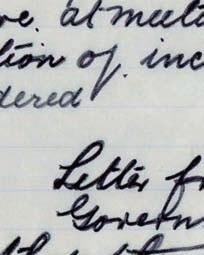 at meeti
tion of inc
dered
Letter fr
Govern